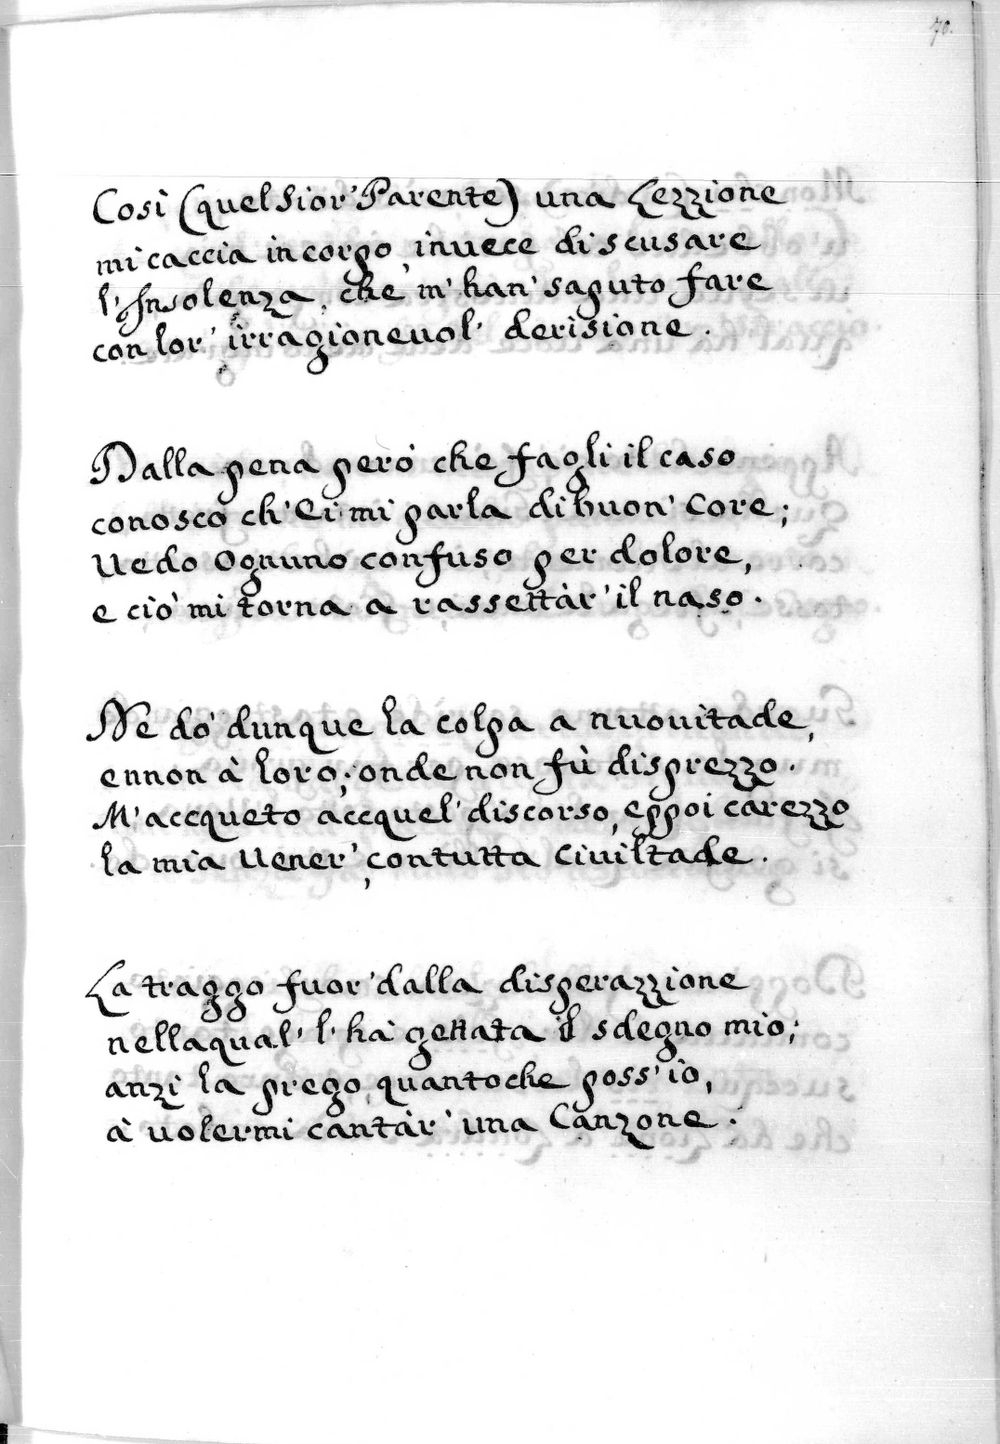 70.
Così (quel Sior' Parente) una Lezzione
mi caccia in corpo, invece di scusare
l'Insolenza, che m'han' saputo fare
con lor' irragionevol' derisione.
Dalla pena però che fagli il caso
conosco ch'Ei mi parla di buon' Core;
Vedo Ognuno confuso per dolore,
e ciò mi torna a rassettàr' il naso.
Ne dò dunque la colpa a nuovitade,
ennon à loro; onde non fù disprezzo.
M'accqueto accquel' discorso, eppoi carezzo
la mia Vener', contutta Civiltade.
La traggo fuor' dalla disperazzione
nellaqual' l'hà gettata il sdegno mio;
anzi la prego, quantoche poss'io,
à volermi cantàr' una Canzone.